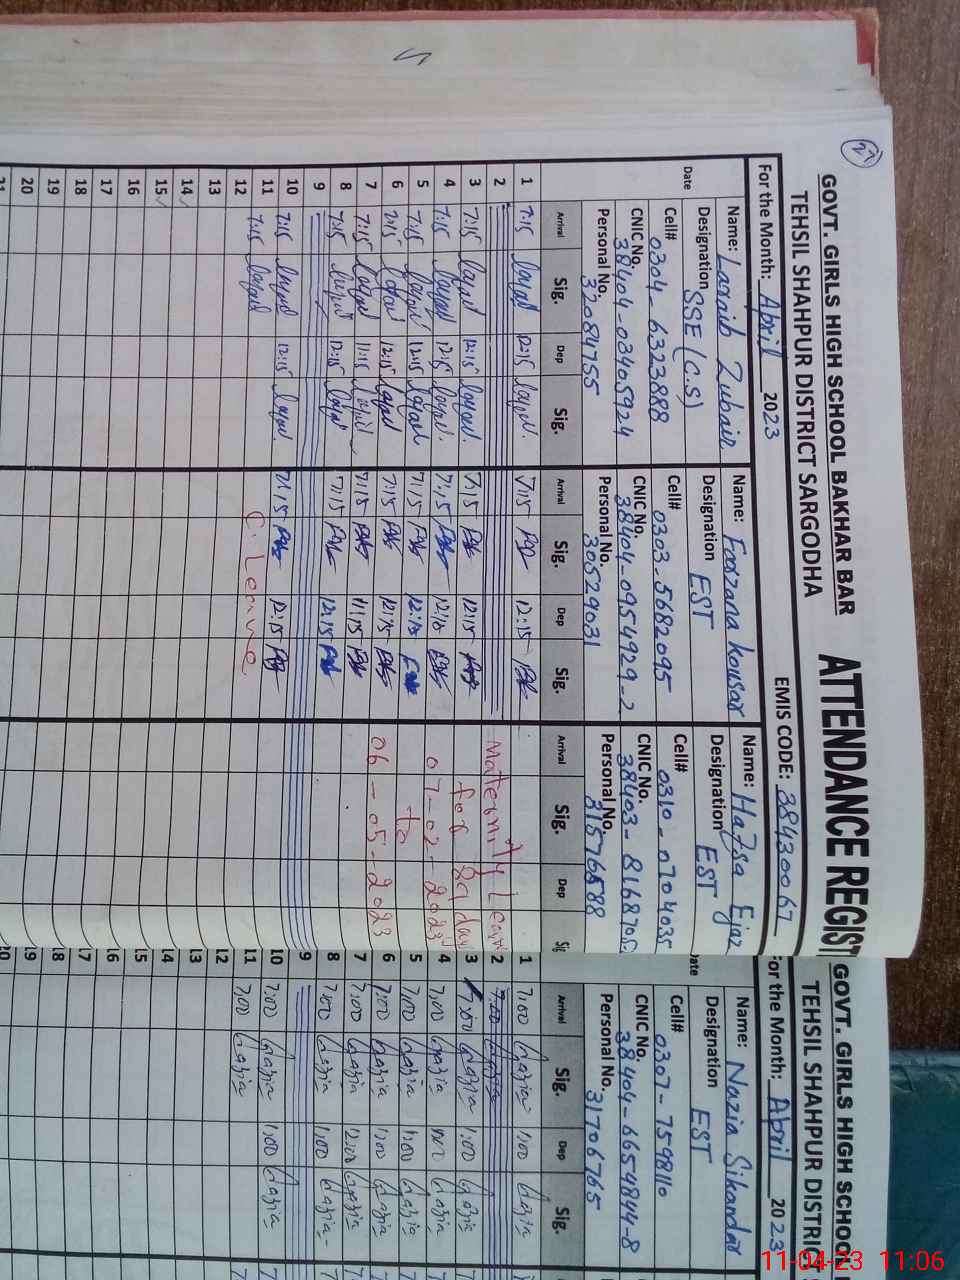 27
GOVT. GIRLS HIGH SCHOOL BAKHAR BAR ATTENDANCE REGIST
TEHSIL SHAHPUR DISTRICT SARGODHA
For the Month: April 2023 EMIS CODE: 38430067
Date
Name: Laraib Zubair
Designation SSE (C.S)
Cell# 0304-6323888
CNIC No. 38404-03405924
Personal No. 32084755
Arrival Sig. Dep Sig.
1 7:15 12:15
2
3 7:15 12:15
4 7:15 12:15
5 7:15 12:15
6 7:15 12:15
7 7:15 11:15
8 7:15 12:15
9
10 7:15 12:15
11 7:15
12
13
14
15
16
17
18
19
20
21
Name: Farzana kousar
Designation EST
Cell# 0303-5682095
CNIC No. 38404-0954929-2
Personal No. 30529031
Arrival Sig. Dep Sig.
7:15 12:15
7:15 12:15
7:15 12:15
7:15 12:15
7:15 12:15
7:15 11:15
7:15 12:15
7:15 12:15
C. Leave
Name: Hafsa Ejaz
Designation EST
Cell# 0310-0704035
CNIC No. 38403-8168705
Personal No. 31576588
Arrival Sig. Dep Sig
Maternity Leave
for 89 day
07-02-2023
to
06-05-2023
GOVT. GIRLS HIGH SCHOOL
TEHSIL SHAHPUR DISTRICT
For the Month: April 2023
Date
Name: Nazia Sikandar
Designation EST
Cell# 0307-7598110
CNIC No. 38404-6654844-8
Personal No. 31706765
Arrival Sig. Dep Sig.
1 7:00 Nazia 1:00 Nazia
2 7:00 Nazia
3 7:00 Nazia 1:00 Nazia
4 7:00 Nazia 1:00 Nazia
5 7:00 Nazia 1:00 Nazia
6 7:00 Nazia 1:00 Nazia
7 7:00 Nazia 12:00 Nazia
8 7:00 Nazia 1:00 Nazia
9
10 7:00 Nazia 1:00 Nazia
11 7:00 Nazia
12
13
14
15
16
17
18
19
20
11-04-23 11:06